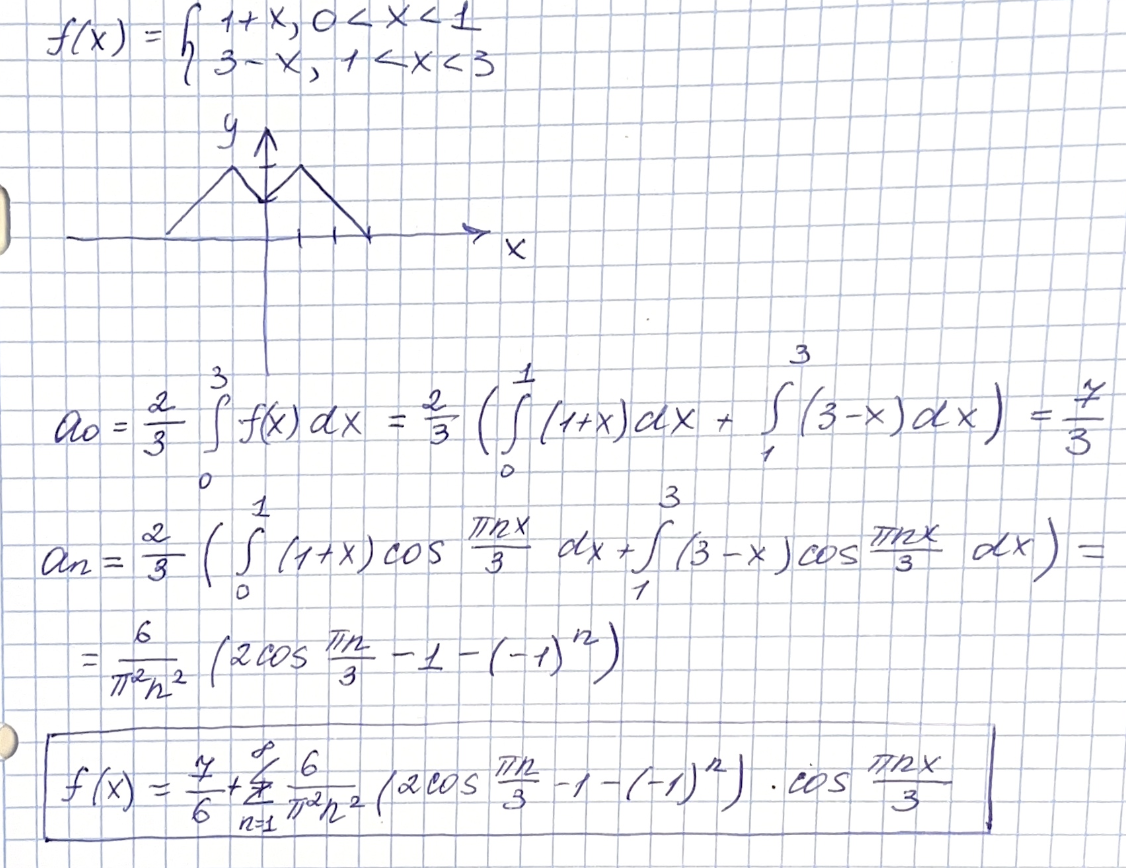 f(x) = { 1+x, 0 < x < 1
3-x, 1 < x < 3
y
x
a₀ = 2/3 ∫₀³ f(x) dx = 2/3 ( ∫₀¹ (1+x) dx + ∫₁³ (3-x) dx ) = 7/3
aₙ = 2/3 ( ∫₀¹ (1+x) cos πnx/3 dx + ∫₁³ (3-x) cos πnx/3 dx ) =
= 6/π²n² (2cos πn/3 - 1 - (-1)ⁿ)
f(x) = 7/6 + ∑ₙ₌₁^∞ 6/π²n² (2cos πn/3 - 1 - (-1)ⁿ) · cos πnx/3